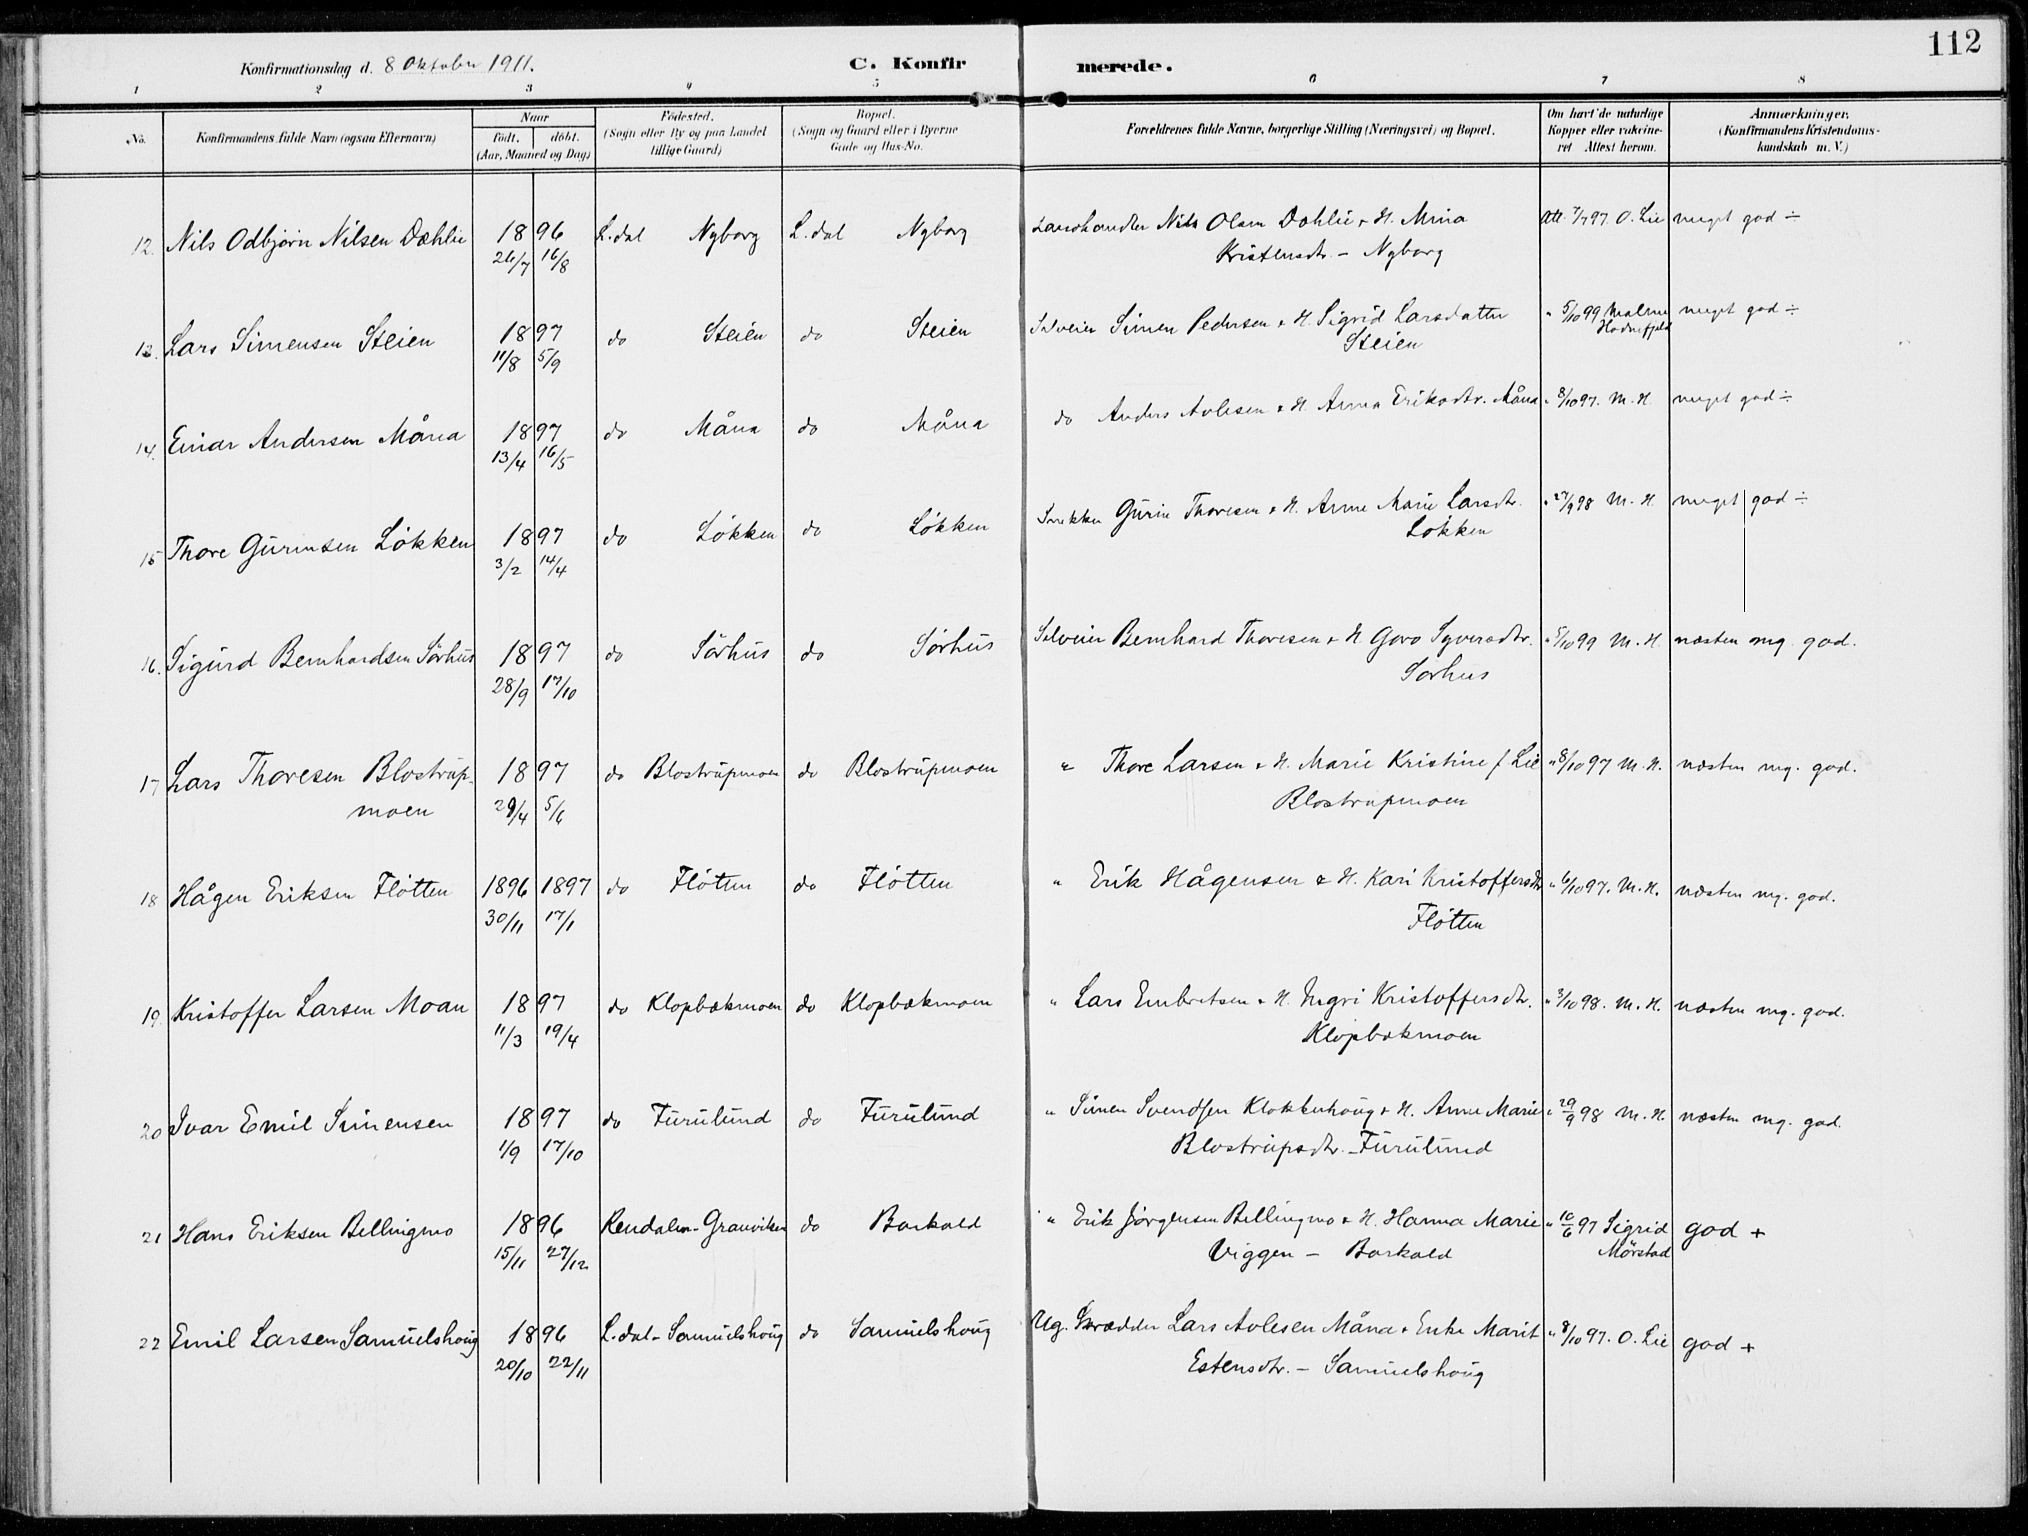 112
Konfirmationsdag d. 8 Oktober 1911.
C. Konfirmerede.
1 2 3 4 5 6 7 8
No. Konfirmandens fulde Navn (ogsaa Efternavn) Naar født. døbt. (Aar, Maaned og Dag) Fødested. (Sogn eller By og paa Landet tillige Gaard) Bopæl. (Sogn og Gaard eller i Byerne Gade og Hus-No. Forældrenes fulde Navne, borgerlige Stilling (Næringsvei) og Bopæl. Om havt de naturlige Kopper eller vakcineret Attest herom. Anmærkninger. (Konfirmandens Kristendomskundskab m. V.)
12. Nils Odbjørn Nilsen Dæhlie 1896 L. dal Nyborg L. dal Nyborg Landhandler Nils Olsen Dæhlie & H. Mina Att. 7/7 97 O. Lie meget god ÷
26/7 16/8 Kristensdtr. – Nyborg
13. Lars Simensen Steien 1897 do Steien do Steien Selveier Simen Pedersen & H. Sigrid Larsdatter " 5/10 99 Malene Hodnefjeld meget god ÷
11/8 5/9 Steien
14. Einar Andersen Måna 1897 do Måna do Måna do Anders Avlesen & H. Anna Eriksdtr. Måna " 8/10 97. M. H. meget god ÷
13/4 16/5
15 Thore Gurinsen Løkken 1897 do Løkken do Løkken Snekker Gurin Thoresen & H. Anne Marie Larsdtr. " 27/9 98 M. H. meget god ÷
3/2 14/4 Løkken
16. Sigurd Bernhardsen Sørhus 1897 do Sørhus do Sørhus Selveier Bernhard Thoresen & H. Goro Syversdtr. " 5/10 99 M. H. næsten mg. god.
28/9 17/10 Sørhus
17 Lars Thoresen Blostrup- 1897 do Blostrupmoen do Blostrupmoen " Thore Larsen & H. Marie Kristine f. Lie " 8/10 97 M. H. næsten mg. god.
moen 29/4 5/6 Blostrupmoen
18 Hågen Eriksen Fløtten 1896 1897 do Fløtten do Fløtten " Erik Hågensen & H. Kari Kristoffersdtr " 6/10 97. M. H. næsten mg. god.
30/11 17/1 Fløtten
19. Kristoffer Larsen Moan 1897 do Klopbækmoen do Klopbækmoen " Lars Embretsen & H. Ingri Kristoffersdtr. " 3/10 98. M. H. næsten mg. god.
11/3 19/4 Klopbækmoen
20 Ivar Emil Simensen 1897 do Furulund do Furulund " Simen Svendsen Klokkerhoug & H. Anne Marie " 29/9 98 M. H. næsten mg. god.
1/9 17/10 Blostrupsdtr. – Furulund
21 Hans Eriksen Bellingmo 1896 Rendalen – Granviken do Barkald " Erik Jørgensen Bellingmo & H. Hanna Marie " 10/6 97 Sigrid Mørstad god +
15/11 27/12 Viggen – Barkald
22 Emil Larsen Samuelshoug 1896 L. dal – Samuelshoug do Samuelshoug Ug. Skrædder Lars Avlesen Måna & Enke Marit " 8/10 97. O. Lie god +
20/10 22/11 Estensdtr. – Samuelshoug